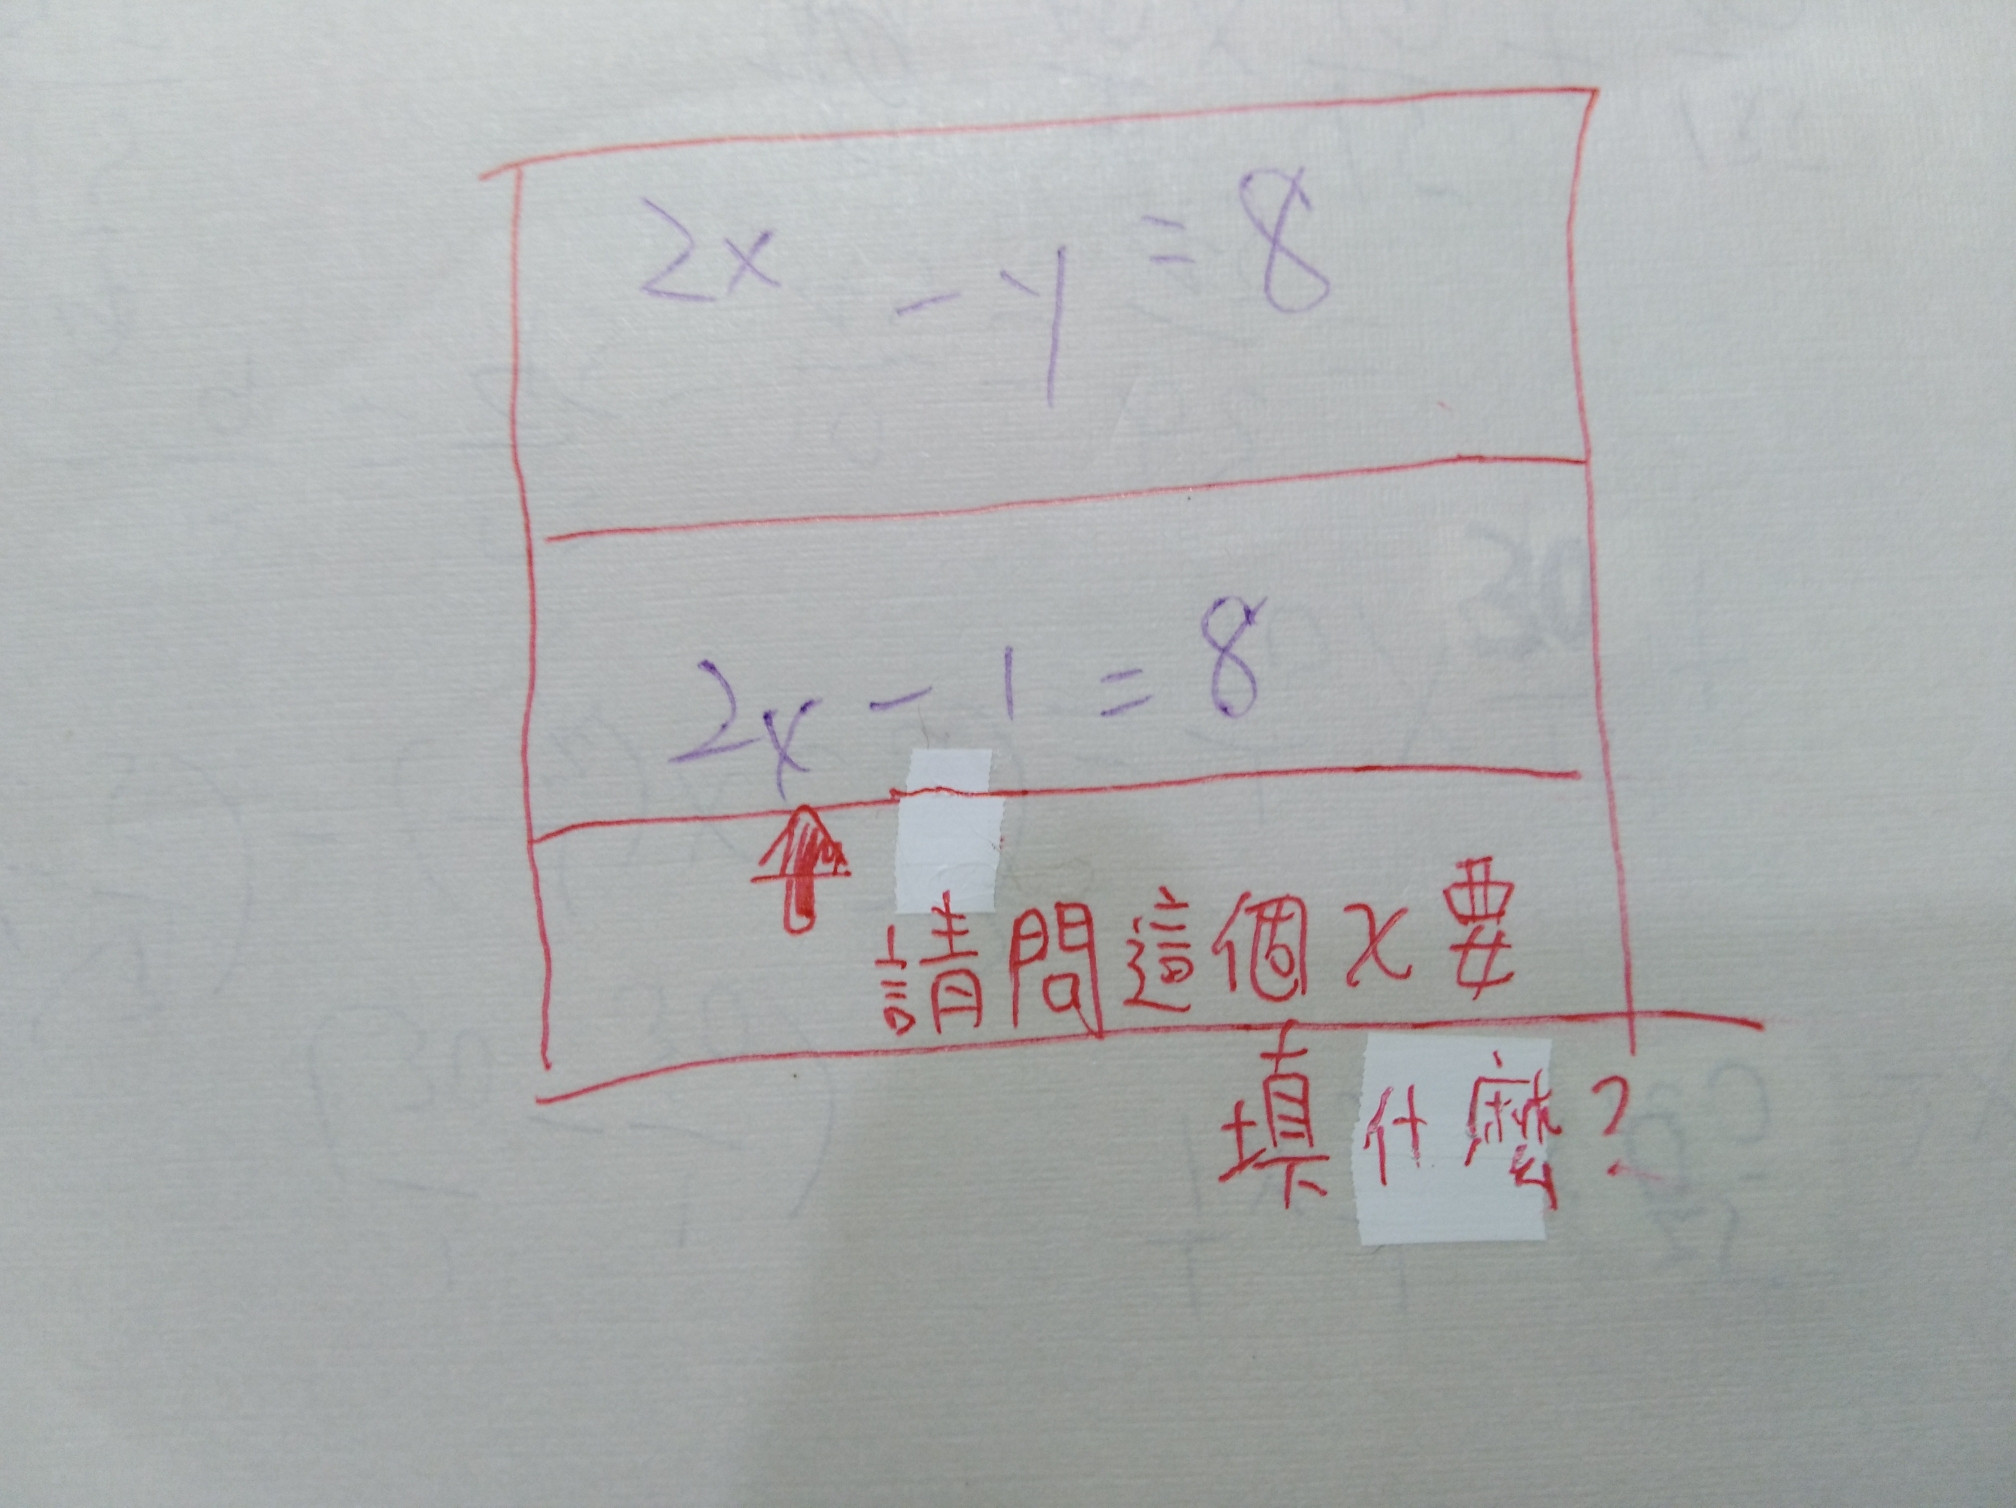 2x - y = 8
2x - 1 = 8
請問這個x要
填什麼?